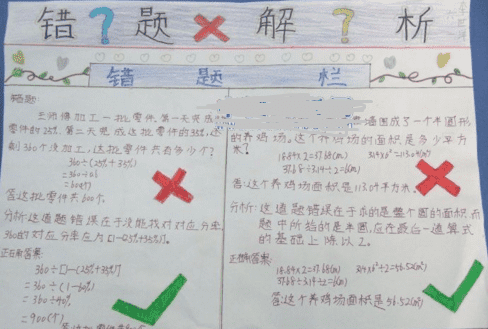 错?题×解?析
错题栏
错题:
王师傅加工一批零件,第一天完成
零件的25%,第二天完成这批零件的35%,还
剩360个没加工,这批零件共有多少个?
360÷(25%+35%)
=360÷0.6
=600(个)
答:这批零件共600个。
分析:这道题错误在于没能找对对应分率,
360的对应分率应为[1-(25%+35%)]。
正确答案:
360÷[1-(25%+35%)]
=360÷(1-60%)
=360÷40%
=900(个)
墙围成了一个半圆形
的养鸡场。这个养鸡场的面积是多少平方
米?
18.84×2=37.68(m) 3.14×6²=113.04(m²)
37.68÷3.14÷2=6(m)
答:这个养鸡场面积是113.04平方米。
分析:这道题错误在于求的是整个圆的面积,而
题中所给的是半圆,应在最后一道算式
的基础上除以2。
正确答案:
18.84×2=37.68(m) 3.14×6²÷2=56.52(m²)
37.68÷3.14÷2=6(m)
答:这个养鸡场面积是56.52(m²)